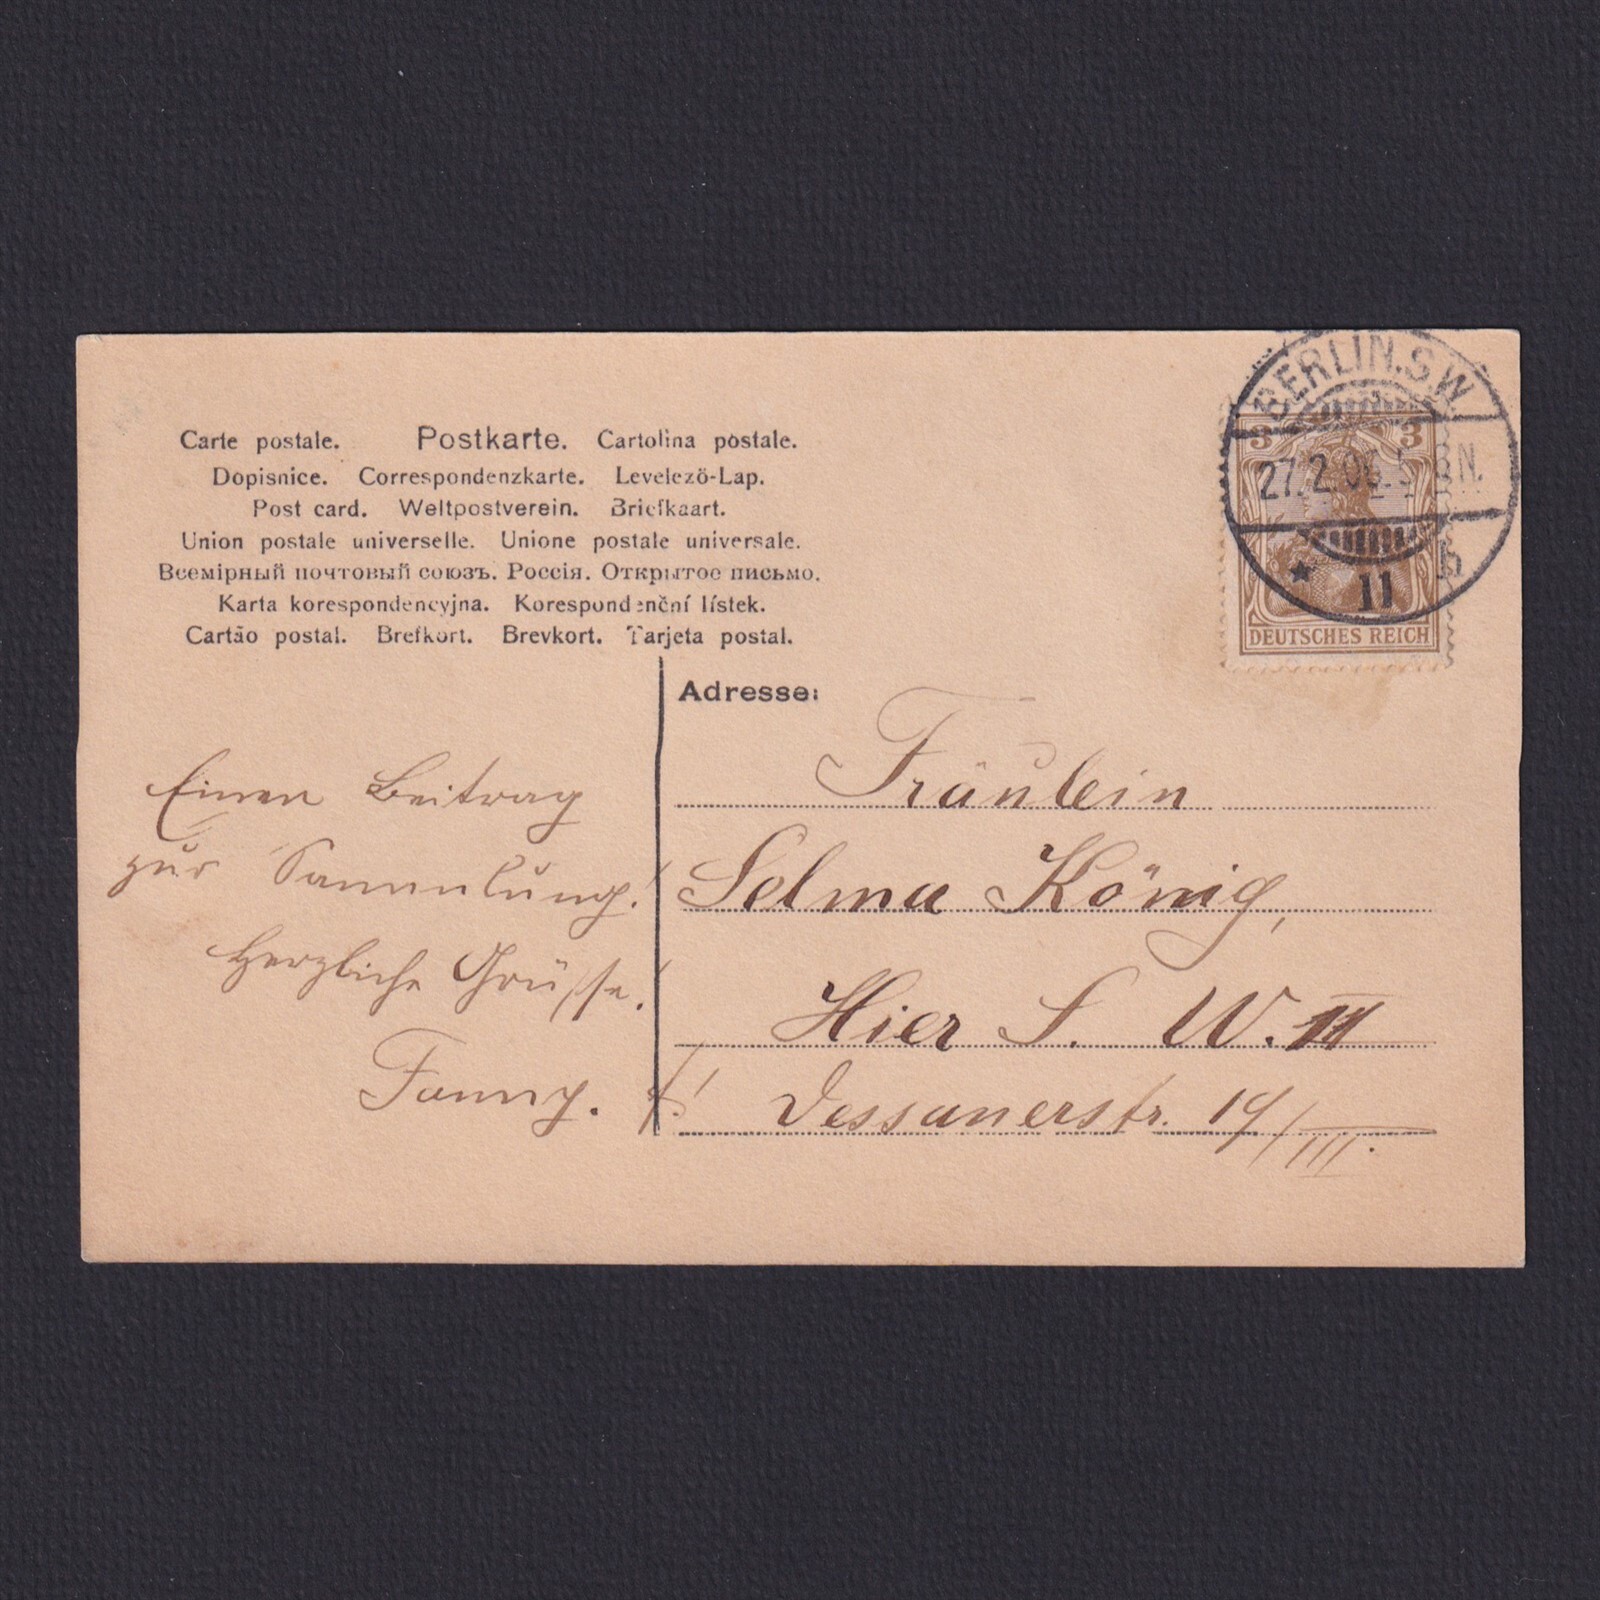 Carte postale. Postkarte. Cartolina postale.
Dopisnice. Correspondenzkarte. Levelező-Lap.
Post card. Weltpostverein. Briefkaart.
Union postale universelle. Unione postale universale.
Всемірный почтовый союзъ. Россія. Открытое письмо.
Karta korespondencyjna. Korespondenční lístek.
Cartão postal. Brefkort. Brevkort. Tarjeta postal.
BERLIN.S.W.
27.2.06. N.
* 11 b
3 3
DEUTSCHES REICH
Einen Beitrag
zur Sammlung!
Herzliche Grüsse!
Fanny.
Adresse:
Fräulein
Selma König,
Hier S. W. 11
Dessauerstr. 19/III.